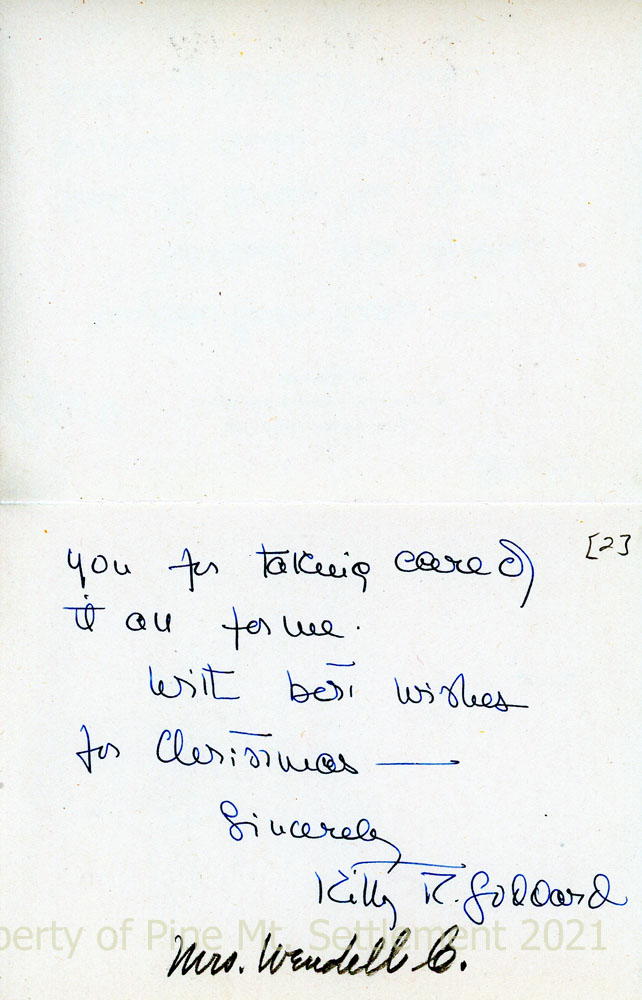 [2]
you for taking care of
it all for me.
With best wishes
for Christmas —
Sincerely
Kitty R. Goddard
perty of Pine Mt. Settlement 2021
Mrs. Wendell C.